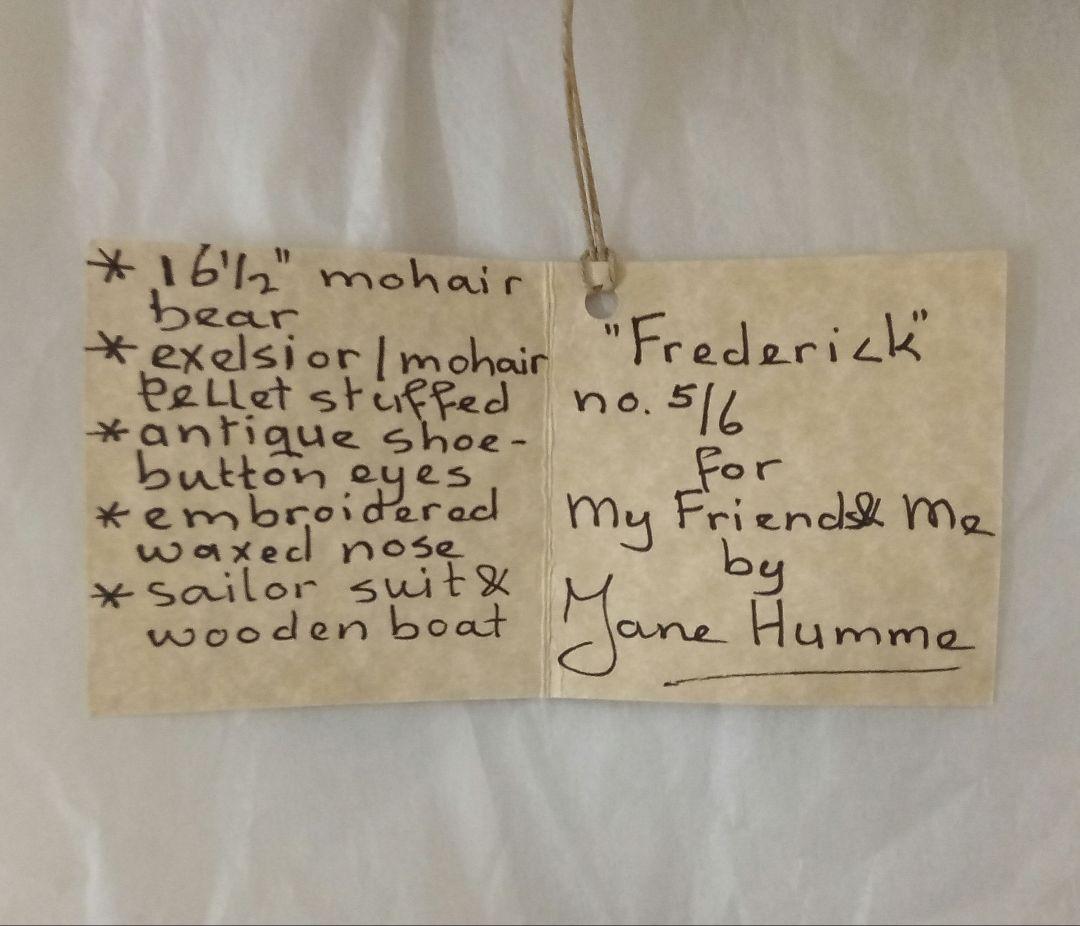 * 16 1/2" mohair
bear
* exelsior/mohair
pellet stuffed
* antique shoe-
button eyes
* embroidered
waxed nose
* sailor suit &
wooden boat
"Frederick"
no. 5/6
for
My Friends & Me
by
Jane Humme